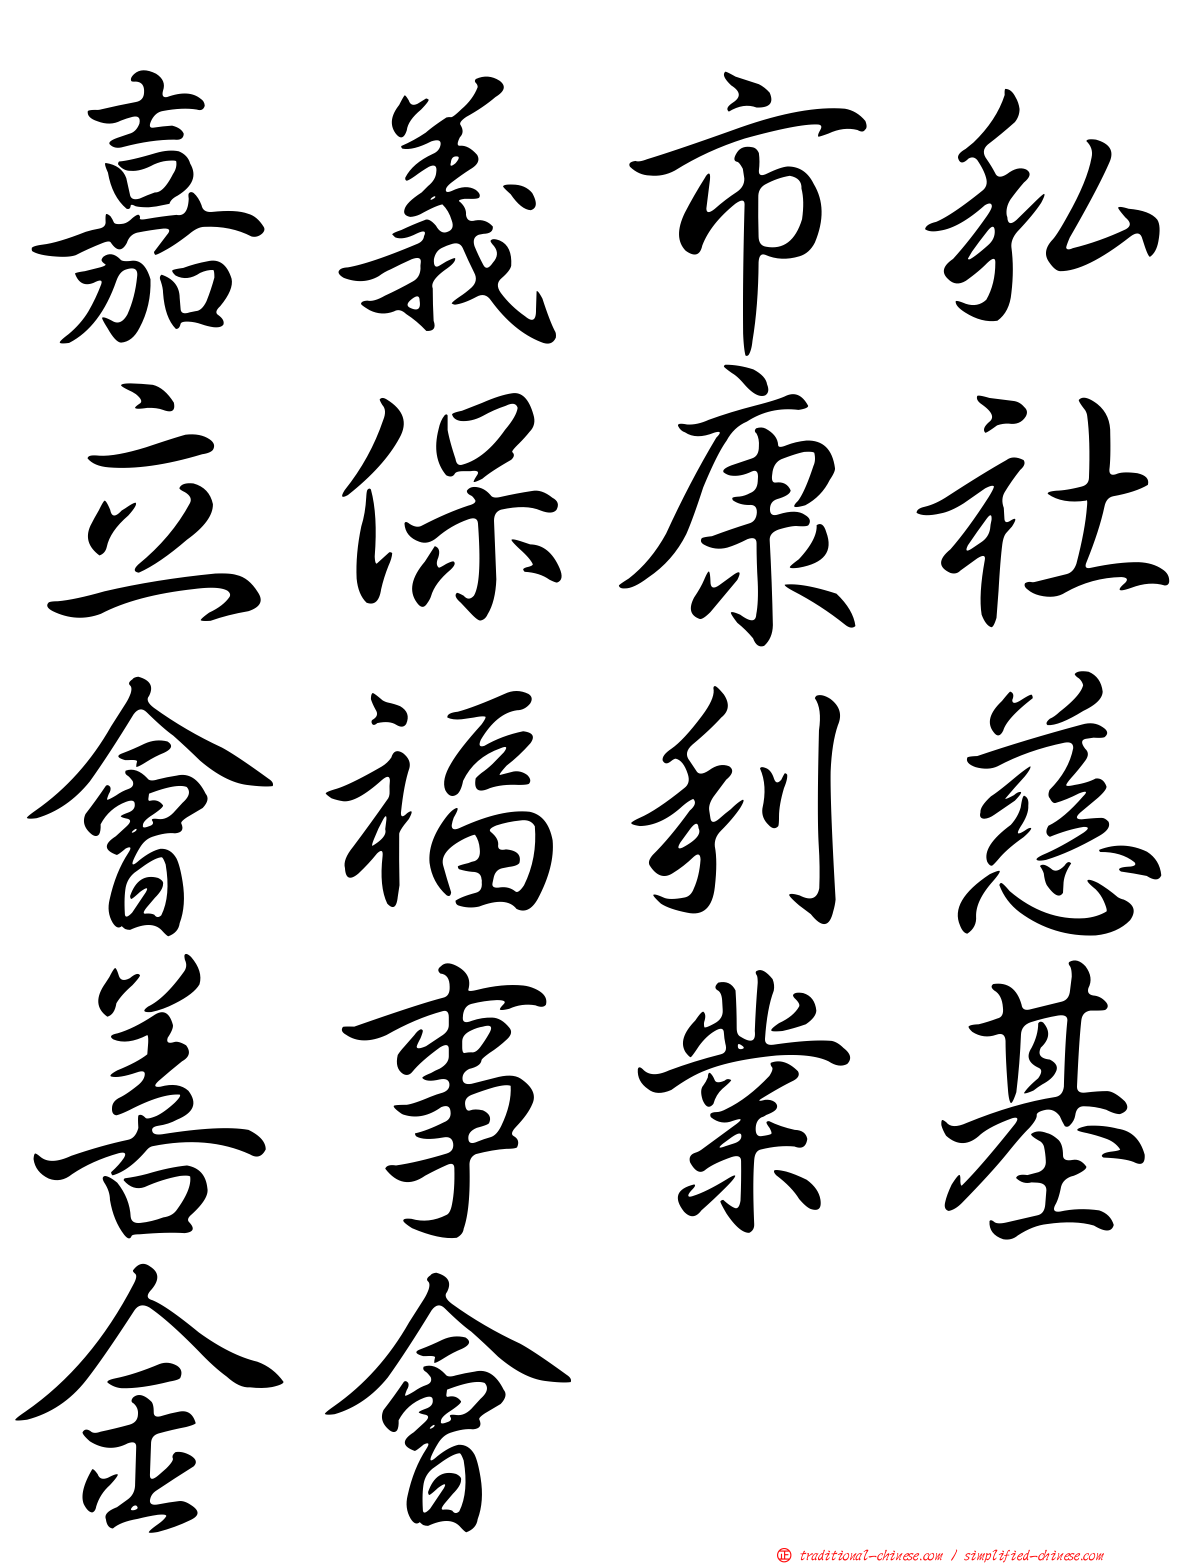 嘉義市私
立保康社
會福利慈
善事業基
金會
正 traditional-chinese.com / simplified-chinese.com